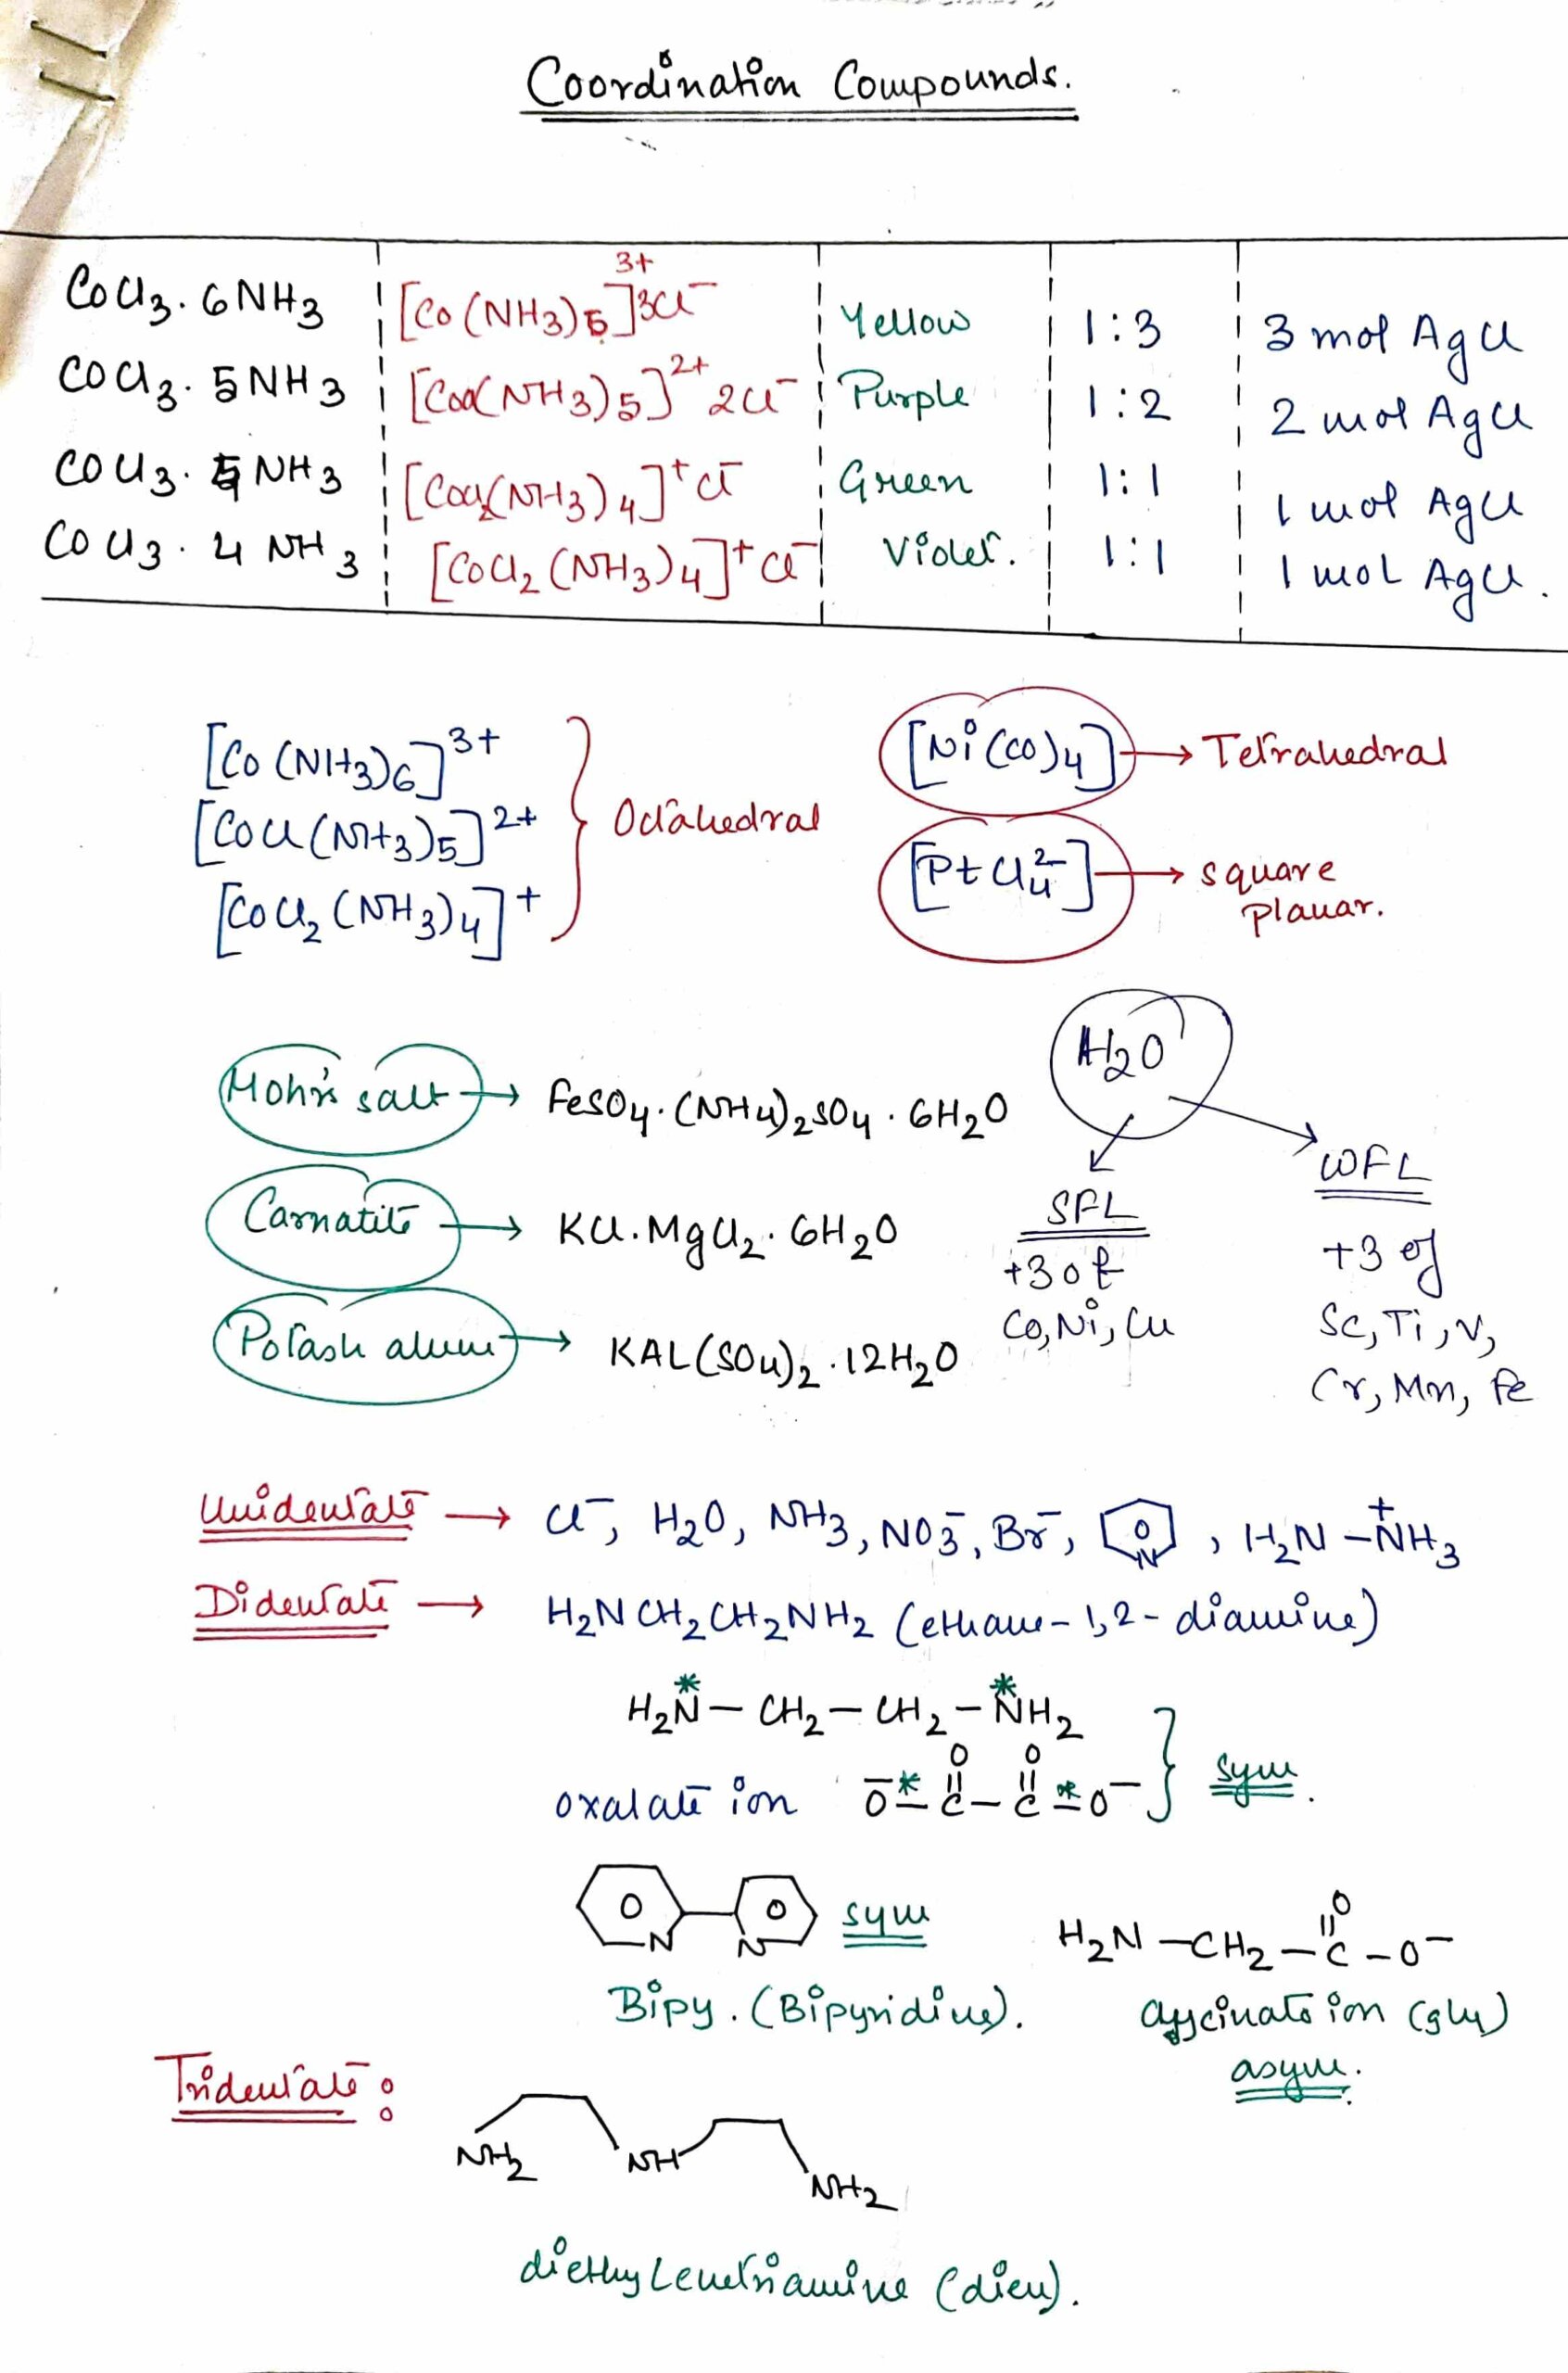 Coordination Compounds.
CoCl3. 6NH3 [Co(NH3)6]3+ 3Cl- Yellow 1:3 3 mol AgCl
CoCl3. 5NH3 [CoCl(NH3)5]2+ 2Cl- Purple 1:2 2 mol AgCl
CoCl3. 4NH3 [CoCl2(NH3)4]+ Cl- Green 1:1 1 mol AgCl
CoCl3. 4NH3 [CoCl2(NH3)4]+ Cl- Violet. 1:1 1 mol AgCl.
[Co(NH3)6]3+
[CoCl(NH3)5]2+
[CoCl2(NH3)4]+
Octahedral
[Ni(CO)4] → Tetrahedral
[PtCl4 2-] → square
planar.
Mohr's salt → FeSO4.(NH4)2SO4.6H2O
Carnatite → KCl.MgCl2.6H2O
Potash alum → KAL(SO4)2.12H2O
H2O
SFL
+3 of
Co, Ni, Cu
WFL
+3 of
Sc, Ti, V,
Cr, Mn, Fe
Unidentate → Cl-, H2O, NH3, NO3-, Br-, N, H2N-N+H3
Didentate → H2NCH2CH2NH2 (ethane-1,2-diamine)
H2N*-CH2-CH2-N*H2
O O
oxalate ion -O*-C-C-*O- } sym.
N N sym
Bipy. (Bipyridine).
O
H2N-CH2-C-O-
glycinate ion (gly)
asym.
Tridentate:
NH2 NH NH2
diethylenetriamine (dien).